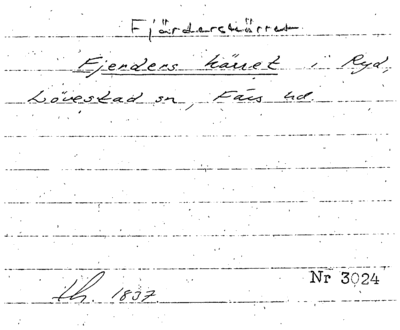 Fjärderskärret
Fjendens kärret i Ryd,
Lövestad sn, Färs hd.
Nr 3024
lh. 1837